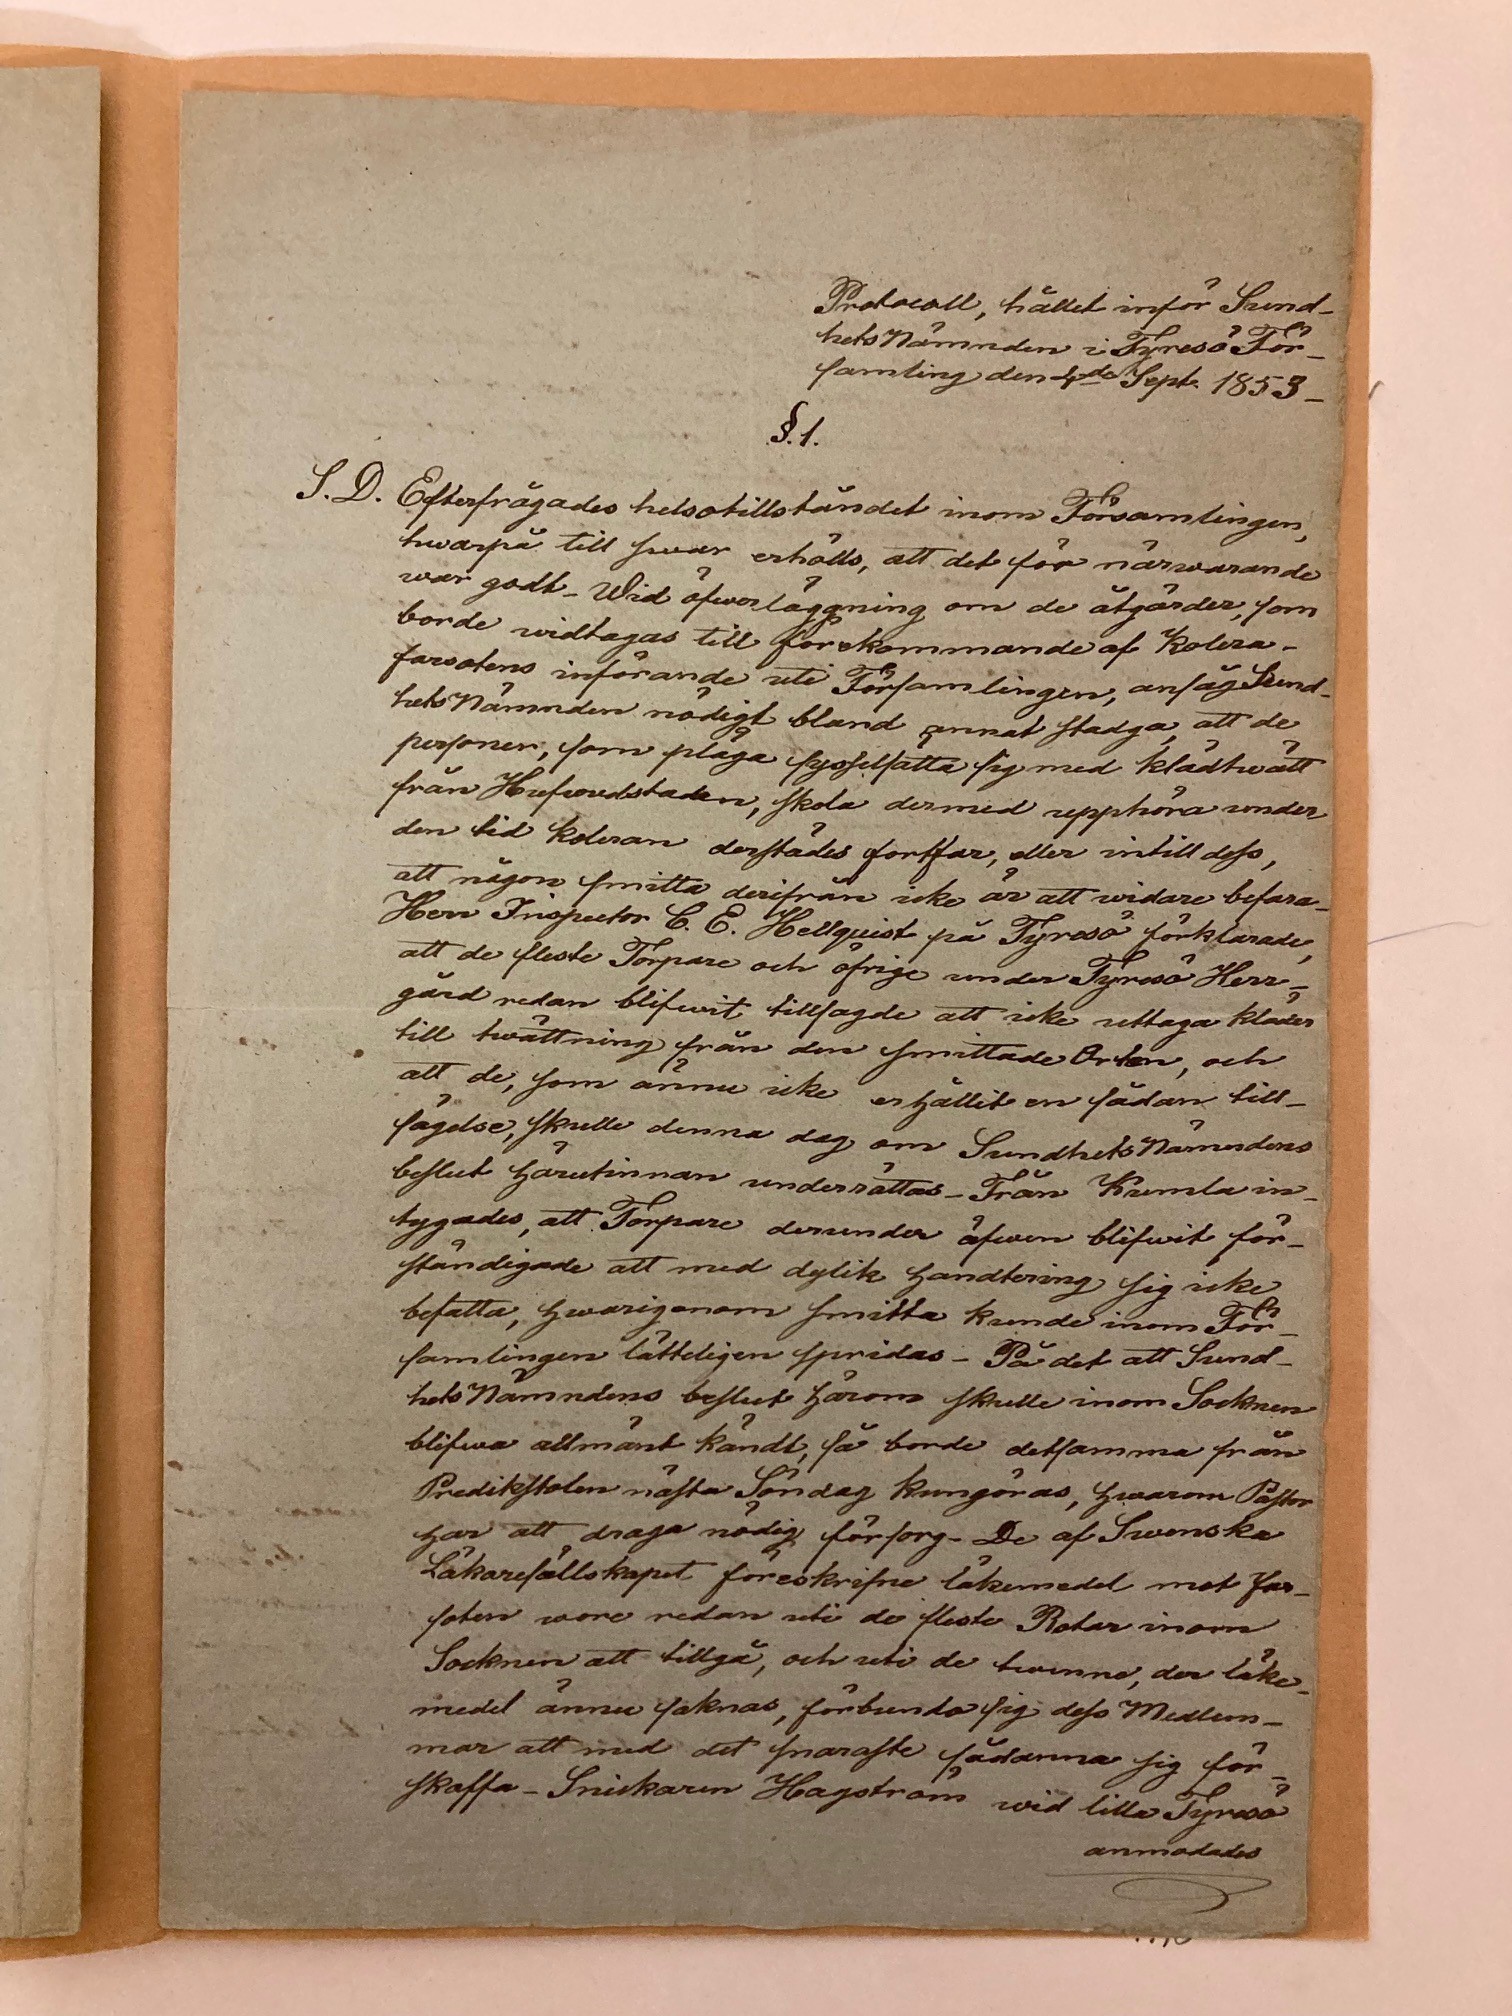 Protocoll, hållet inför Sund-
hets Nämnden i Tyresö För-
samling den 4de Sept. 1853 -
§. 1.
S. D. Efterfrågades helsotillståndet inom Församlingen,
hwarpå till swar erhölls, att det för närwarande
war godt - Wid öfwerläggning om de åtgärder, som
borde widtagas till förekommande af Kolera-
farsotens införande uti Församlingen, ansåg Sund-
hets Nämnden nödigt bland annat stadga, att de
personer, som pläga sysselsätta sig med klädtwätt
från Hufwudstaden, skola dermed upphöra under
den tid koleran derstädes fortfar, eller intill dess,
att någon smitta derifrån icke är att widare befara -
Herr Inspector C. E. Hellquist på Tyresö förklarade,
att de fleste Torpare och öfrige under Tyresö Herr-
gård redan blifwit tillsagde att icke uttaga kläder
till twättning från den smittade Orten, och
att de, som ännu icke erhållit en sådan till-
sägelse, skulle denna dag om Sundhets Nämndens
beslut härutinnan underrättas - Från Kumla in-
tygades, att Torpare derunder äfwen blifwit för-
ständigade att med dylik handtering sig icke
befatta, hwarigenom smitta kunde inom För-
samlingen lätteligen spridas - På det att Sund-
hets Nämndens beslut härom skulle inom Socknen
blifwa allmänt kändt, så borde detsamma från
Predikstolen nästa Söndag kungöras, hwarom Pastor
har att draga nödig försorg - De af Swenska
Läkaresällskapet föreskrifne läkemedel mot far-
soten wore redan uti de fleste Rotar inom
Socknen att tillgå, och uti de twenne, der läke-
medel ännu saknas, förbundo sig dess Medlem-
mar att med det snaraste sådanna sig för-
skaffa - Snickaren Hagström wid lilla Tyresö
anmodades